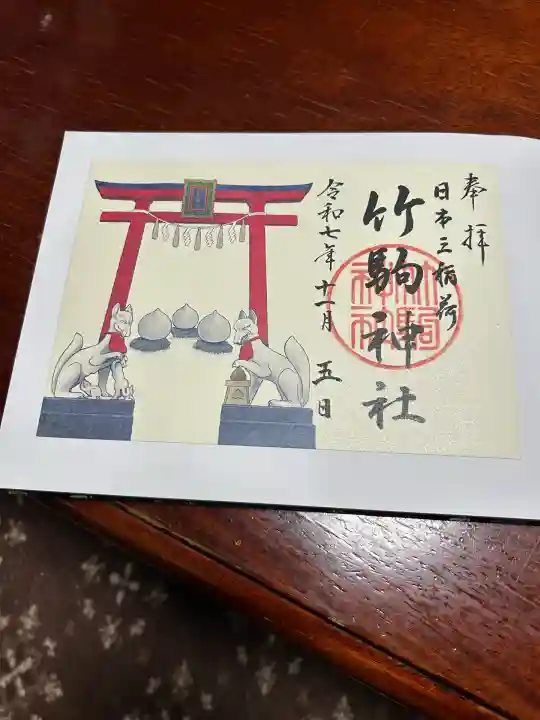 奉拝
日本三稲荷
竹駒神社
令和七年十一月五日